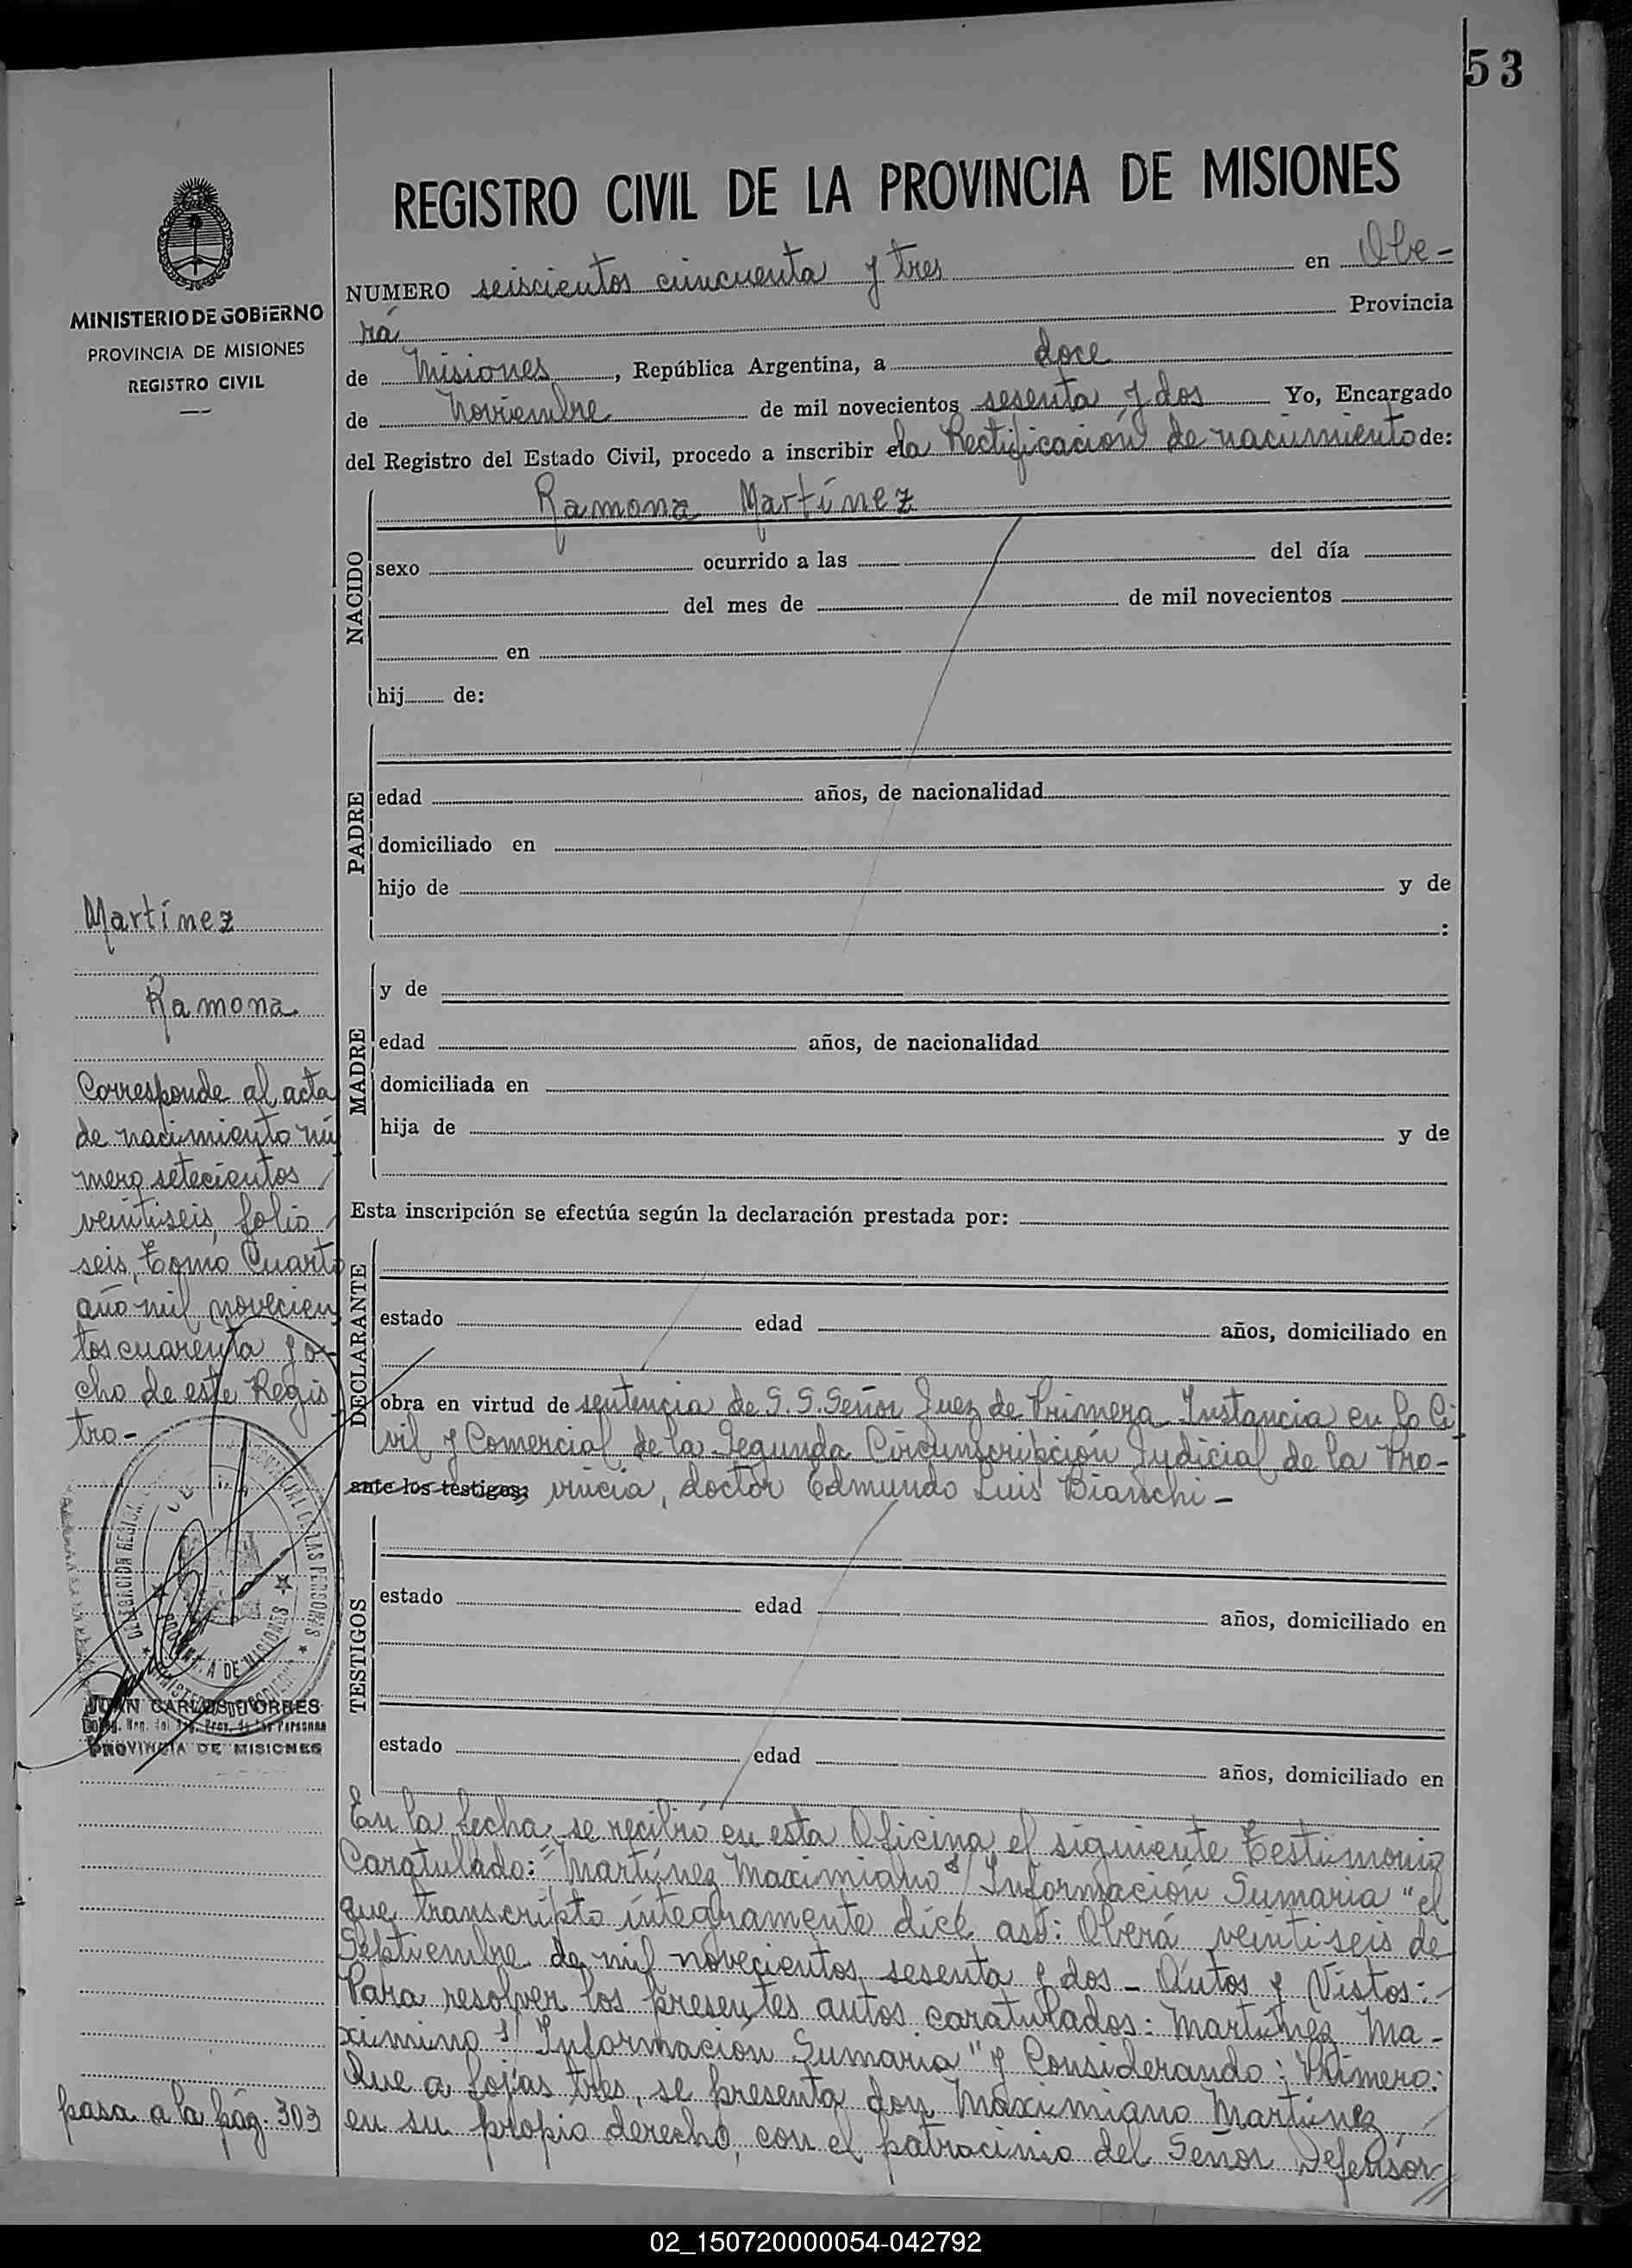 53
REGISTRO CIVIL DE LA PROVINCIA DE MISIONES
MINISTERIO DE GOBIERNO
PROVINCIA DE MISIONES
REGISTRO CIVIL
NUMERO seiscientos cincuenta y tres en Obe-
rá Provincia
de Misiones, República Argentina, a doce
de Noviembre de mil novecientos sesenta y dos Yo, Encargado
del Registro del Estado Civil, procedo a inscribir ela Rectificación de nacimiento de:
NACIDO
Ramona Martínez
sexo ocurrido a las del día
del mes de de mil novecientos
en
hij de:
PADRE
edad años, de nacionalidad
domiciliado en
hijo de y de
:
MADRE
y de
edad años, de nacionalidad
domiciliada en
hija de y de
Esta inscripción se efectúa según la declaración prestada por:
DECLARANTE
estado edad años, domiciliado en
obra en virtud de sentencia de S. S. Señor Juez de Primera Instancia en lo Ci-
vil y Comercial de la Segunda Circunscripción Judicial de la Pro-
ante los testigos: vincia, doctor Edmundo Luis Bianchi -
TESTIGOS
estado edad años, domiciliado en
estado edad años, domiciliado en
En la fecha se recibió en esta Oficina el siguiente Testimonio
Caratulado: "Martínez Maximiano s/ Información Sumaria" el
que transcripto íntegramente dice así: Oberá veintiseis de
Septiembre de mil novecientos sesenta y dos - Autos y Vistos: -
Para resolver los presentes autos caratulados: Martínez Ma-
ximino s/ Información Sumaria" y Considerando: Primero:
Que a fojas tres, se presenta don Maximiano Martínez,
en su propio derecho, con el patrocinio del Señor Defensor //
Martínez
Ramona
Corresponde al acta
de nacimiento nú
mero setecientos
veintiseis, folio
seis, Tomo Cuarto
año mil novecien
tos cuarenta y o-
cho de este Regis
tro -
JUAN CARLOS TORRES
PROVINCIA DE MISIONES
pasa a la pág. 303
02_150720000054-042792